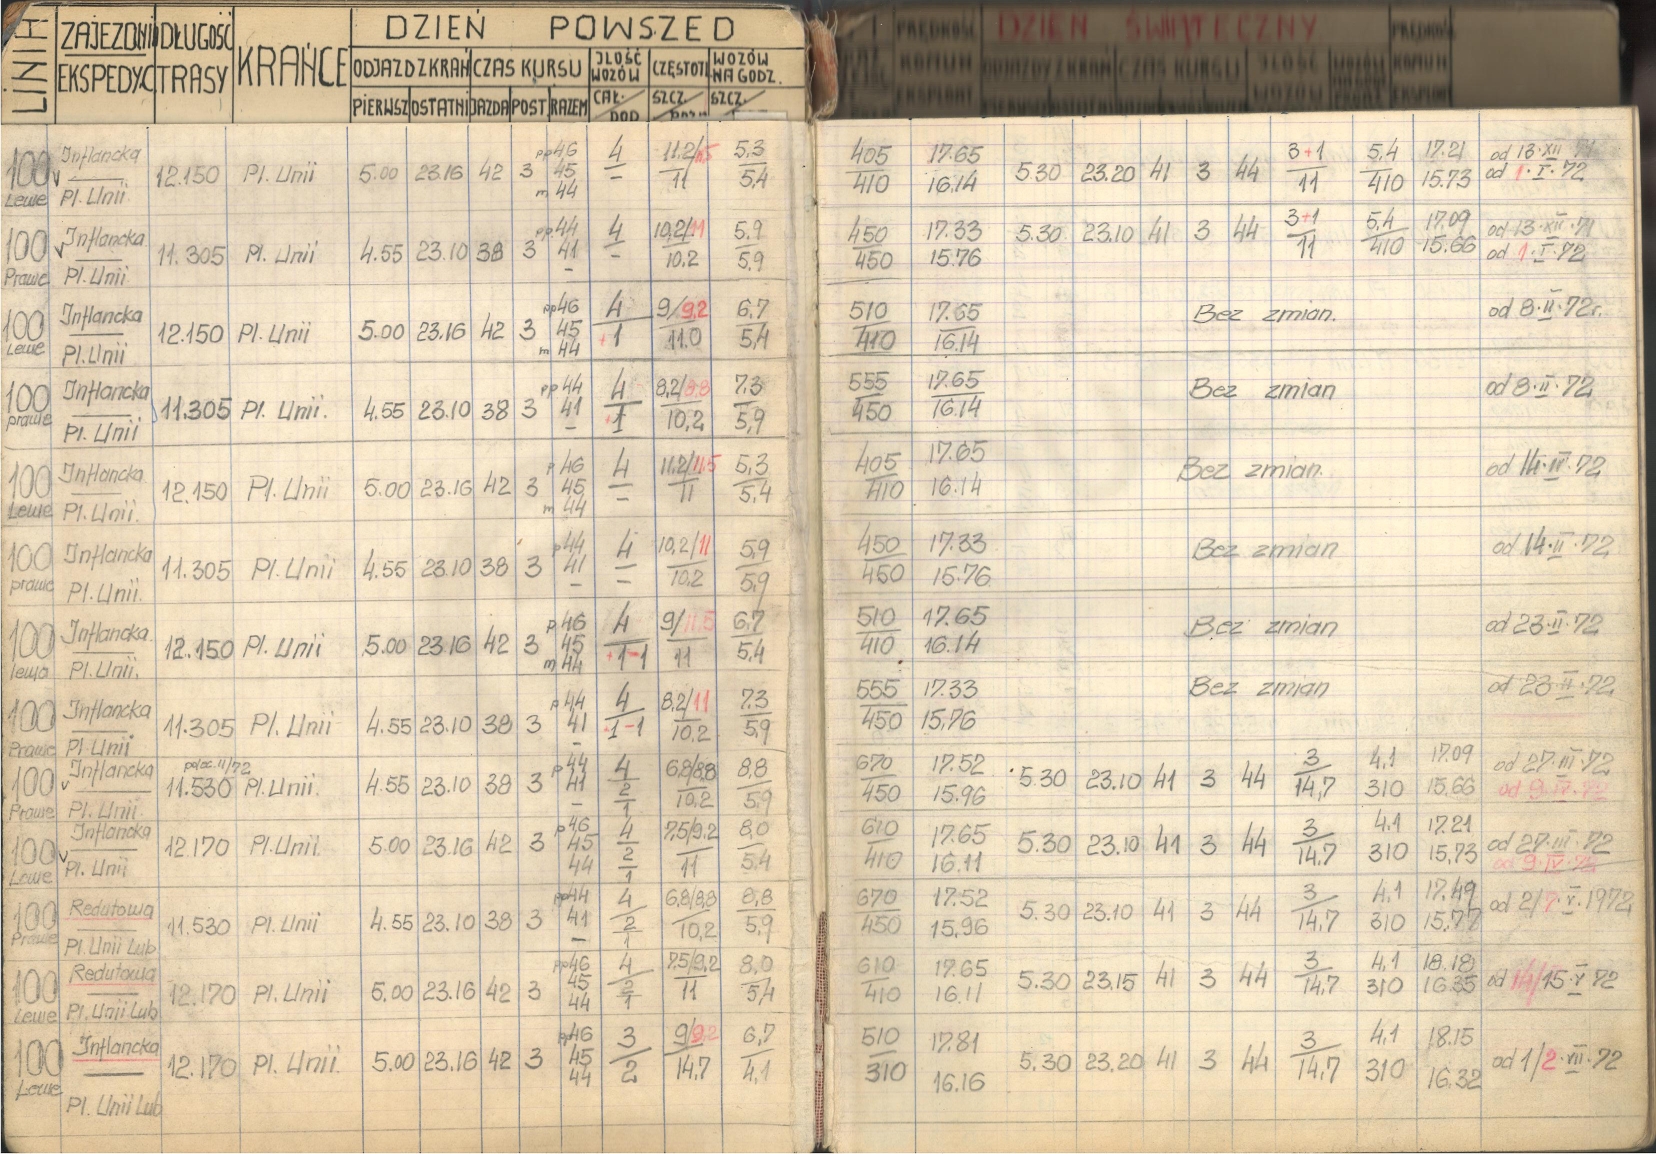 LINIA ZAJEZDN EKSPEDYC DŁUGOŚĆ TRASY KRAŃCE DZIEŃ POWSZED
ODJAZD Z KRAŃ CZAS KURSU ILOŚĆ WOZÓW CZĘSTOTL WOZÓW NA GODZ.
PIERWSZ OSTATNI JAZDA POST. RAZEM CAŁ. DOD SZCZ. SZCZ.
PRĘDKOŚĆ KOMUN EKSPLOAT DZIEŃ ŚWIĄTECZNY PRĘDKOŚĆ KOMUN EKSPLOAT
ODJAZDY Z KRAŃ CZAS KURSU ILOŚĆ WOZÓW
100 Lewe Inflancka Pl. Unii 12.150 Pl. Unii 5.00 23.16 42 3 pp46 45 m 44 4 – 11.2/11.5 11 5,3 5,4 405 410 17.65 16.14 5.30 23.20 41 3 44 3+1 11 5,4 410 17.21 15.73 od 13·XII·71 od 1·I·72
100 Prawe Inflancka Pl. Unii 11.305 Pl. Unii 4.55 23.10 38 3 pp44 41 – 4 – 10,2/11 10.2 5,9 5,9 450 450 17.33 15.76 5.30 23.10 41 3 44 3+1 11 5,4 410 17.09 15.66 od 13·XII·71 od 1·I·72
100 Lewe Inflancka Pl. Unii 12.150 Pl. Unii 5.00 23.16 42 3 pp46 45 m 44 4 +1 9/9,2 11.0 6,7 5,4 510 410 17.65 16.14 Bez zmian. od 8·II·72r.
100 prawe Inflancka Pl. Unii 11.305 Pl. Unii. 4.55 23.10 38 3 pp44 41 – 4 +1 8,2/8.8 10,2 7,3 5,9 555 450 17.65 16.14 Bez zmian od 8·II·72
100 Lewe Inflancka Pl. Unii. 12.150 Pl. Unii 5.00 23.16 42 3 p 46 45 m 44 4 – 11.2/11.5 11 5,3 5,4 405 410 17.65 16.14 Bez zmian. od 14·II·72
100 prawe Inflancka Pl. Unii. 11.305 Pl. Unii 4.55 23.10 38 3 p44 41 – 4 – 10,2/11 10.2 5,9 5,9 450 450 17.33 15.76 Bez zmian od 14·II·72
100 lewa Inflancka Pl. Unii. 12.150 Pl. Unii 5.00 23.16 42 3 p 46 45 m 44 4 +1-1 9/11.5 11 6,7 5,4 510 410 17.65 16.14 Bez zmian od 23·II·72
100 Prawe Inflancka Pl. Unii 11.305 Pl. Unii 4.55 23.10 38 3 p44 41 – 4 +1-1 8,2/11 10.2 7.3 5,9 555 450 17.33 15,76 Bez zmian od 23·II·72
100 Prawe Inflancka Pl. Unii. 11.530 Pl. Unii. 4.55 23.10 38 3 p44 41 – 4 2 1 6,8/8,8 10,2 8,8 5,9 670 450 17.52 15.96 5.30 23.10 41 3 44 3 14,7 4,1 310 17.09 15,66 od 27·III·72 od 9·IV·72
100 Lewe Inflancka Pl. Unii 12.170 Pl. Unii. 5.00 23.16 42 3 p46 45 44 4 2 1 7,5/9,2 11 8,0 5,4 610 410 17.65 16.11 5.30 23.10 41 3 44 3 14,7 4,1 310 17.21 15,73 od 27·III·72 od 9·IV·72
100 Prawe Redutowa Pl. Unii Lub 11.530 Pl. Unii 4.55 23.10 38 3 pp44 41 – 4 2 1 6,8/8,8 10,2 8,8 5,9 670 450 17.52 15,96 5.30 23.10 41 3 44 3 14,7 4,1 310 17,49 15,77 od 2/7·V·1972
100 Lewe Redutowa Pl. Unii Lub 12.170 Pl. Unii 5.00 23.16 42 3 pp46 45 44 4 2 1 7,5/9,2 11 8,0 5,4 610 410 17.65 16.11 5.30 23.15 41 3 44 3 14,7 4,1 310 18.18 16.35 od 14/15·V·72
100 Lewe Inflancka Pl. Unii Lub 12.170 Pl. Unii. 5.00 23.16 42 3 pp46 45 44 3 2 9/9,2 14,7 6,7 4,1 510 310 17.81 16.16 5.30 23.20 41 3 44 3 14,7 4,1 310 18.15 16.32 od 1/2·VII·72